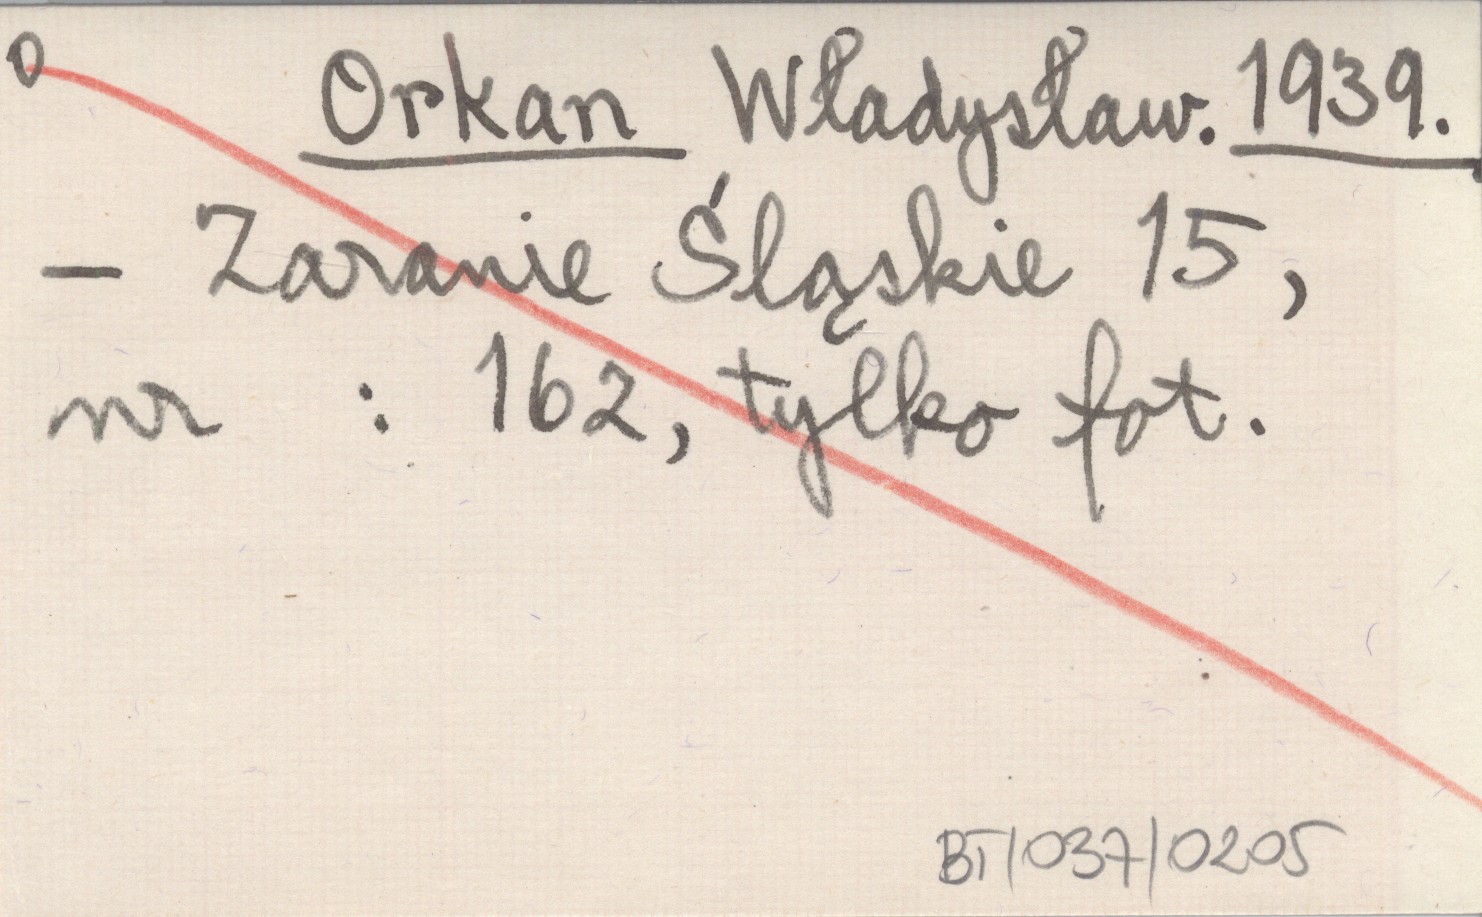 O
Orkan Władysław. 1939.
— Zaranie Śląskie 15,
nr : 162, tylko fot.
BT/037/0205